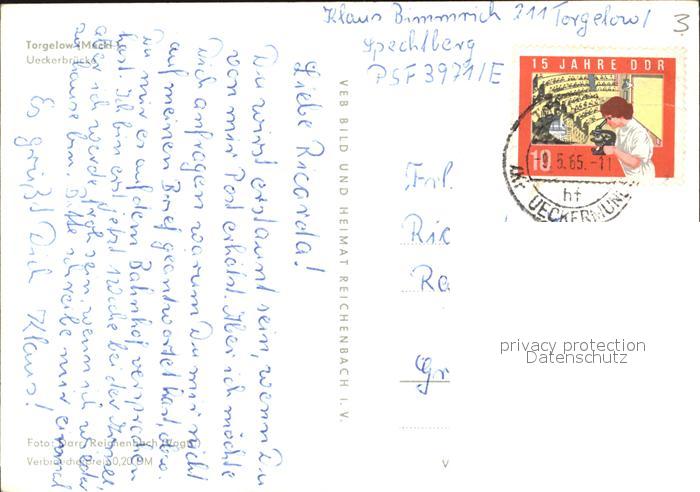 Klaus Bimmrich 211 Torgelow/
Spechtberg
PSF 3971/E
3
Torgelow (Meckl.)
Ueckerbrücke
Liebe Ricarda!
Du wirst erstaunt sein, wenn Du
von mir Post erhälst. Aber ich möchte
Dich anfragen warum Du mir nicht
auf meinen Brief geantwortet hast, obwo.
Du mir es auf dem Bahnhof versprochen
hast. Ich bin erst jetzt 1 Woche bei der Armee,
aber ich werde froh sein, wenn ich wieder
zu Hause bin. Bitte schreibe mir einmal
Es grüßt Dich Klaus!
VEB BILD UND HEIMAT REICHENBACH I. V.
15 JAHRE DDR
10
5.65.-11
hf
UECKERMÜN
Frl.
Ric
Ra
Gr
privacy protection
Datenschutz
Foto: Darr, Reichenbach (Vogtl.)
Verbraucherpreis 0,20 DM
V